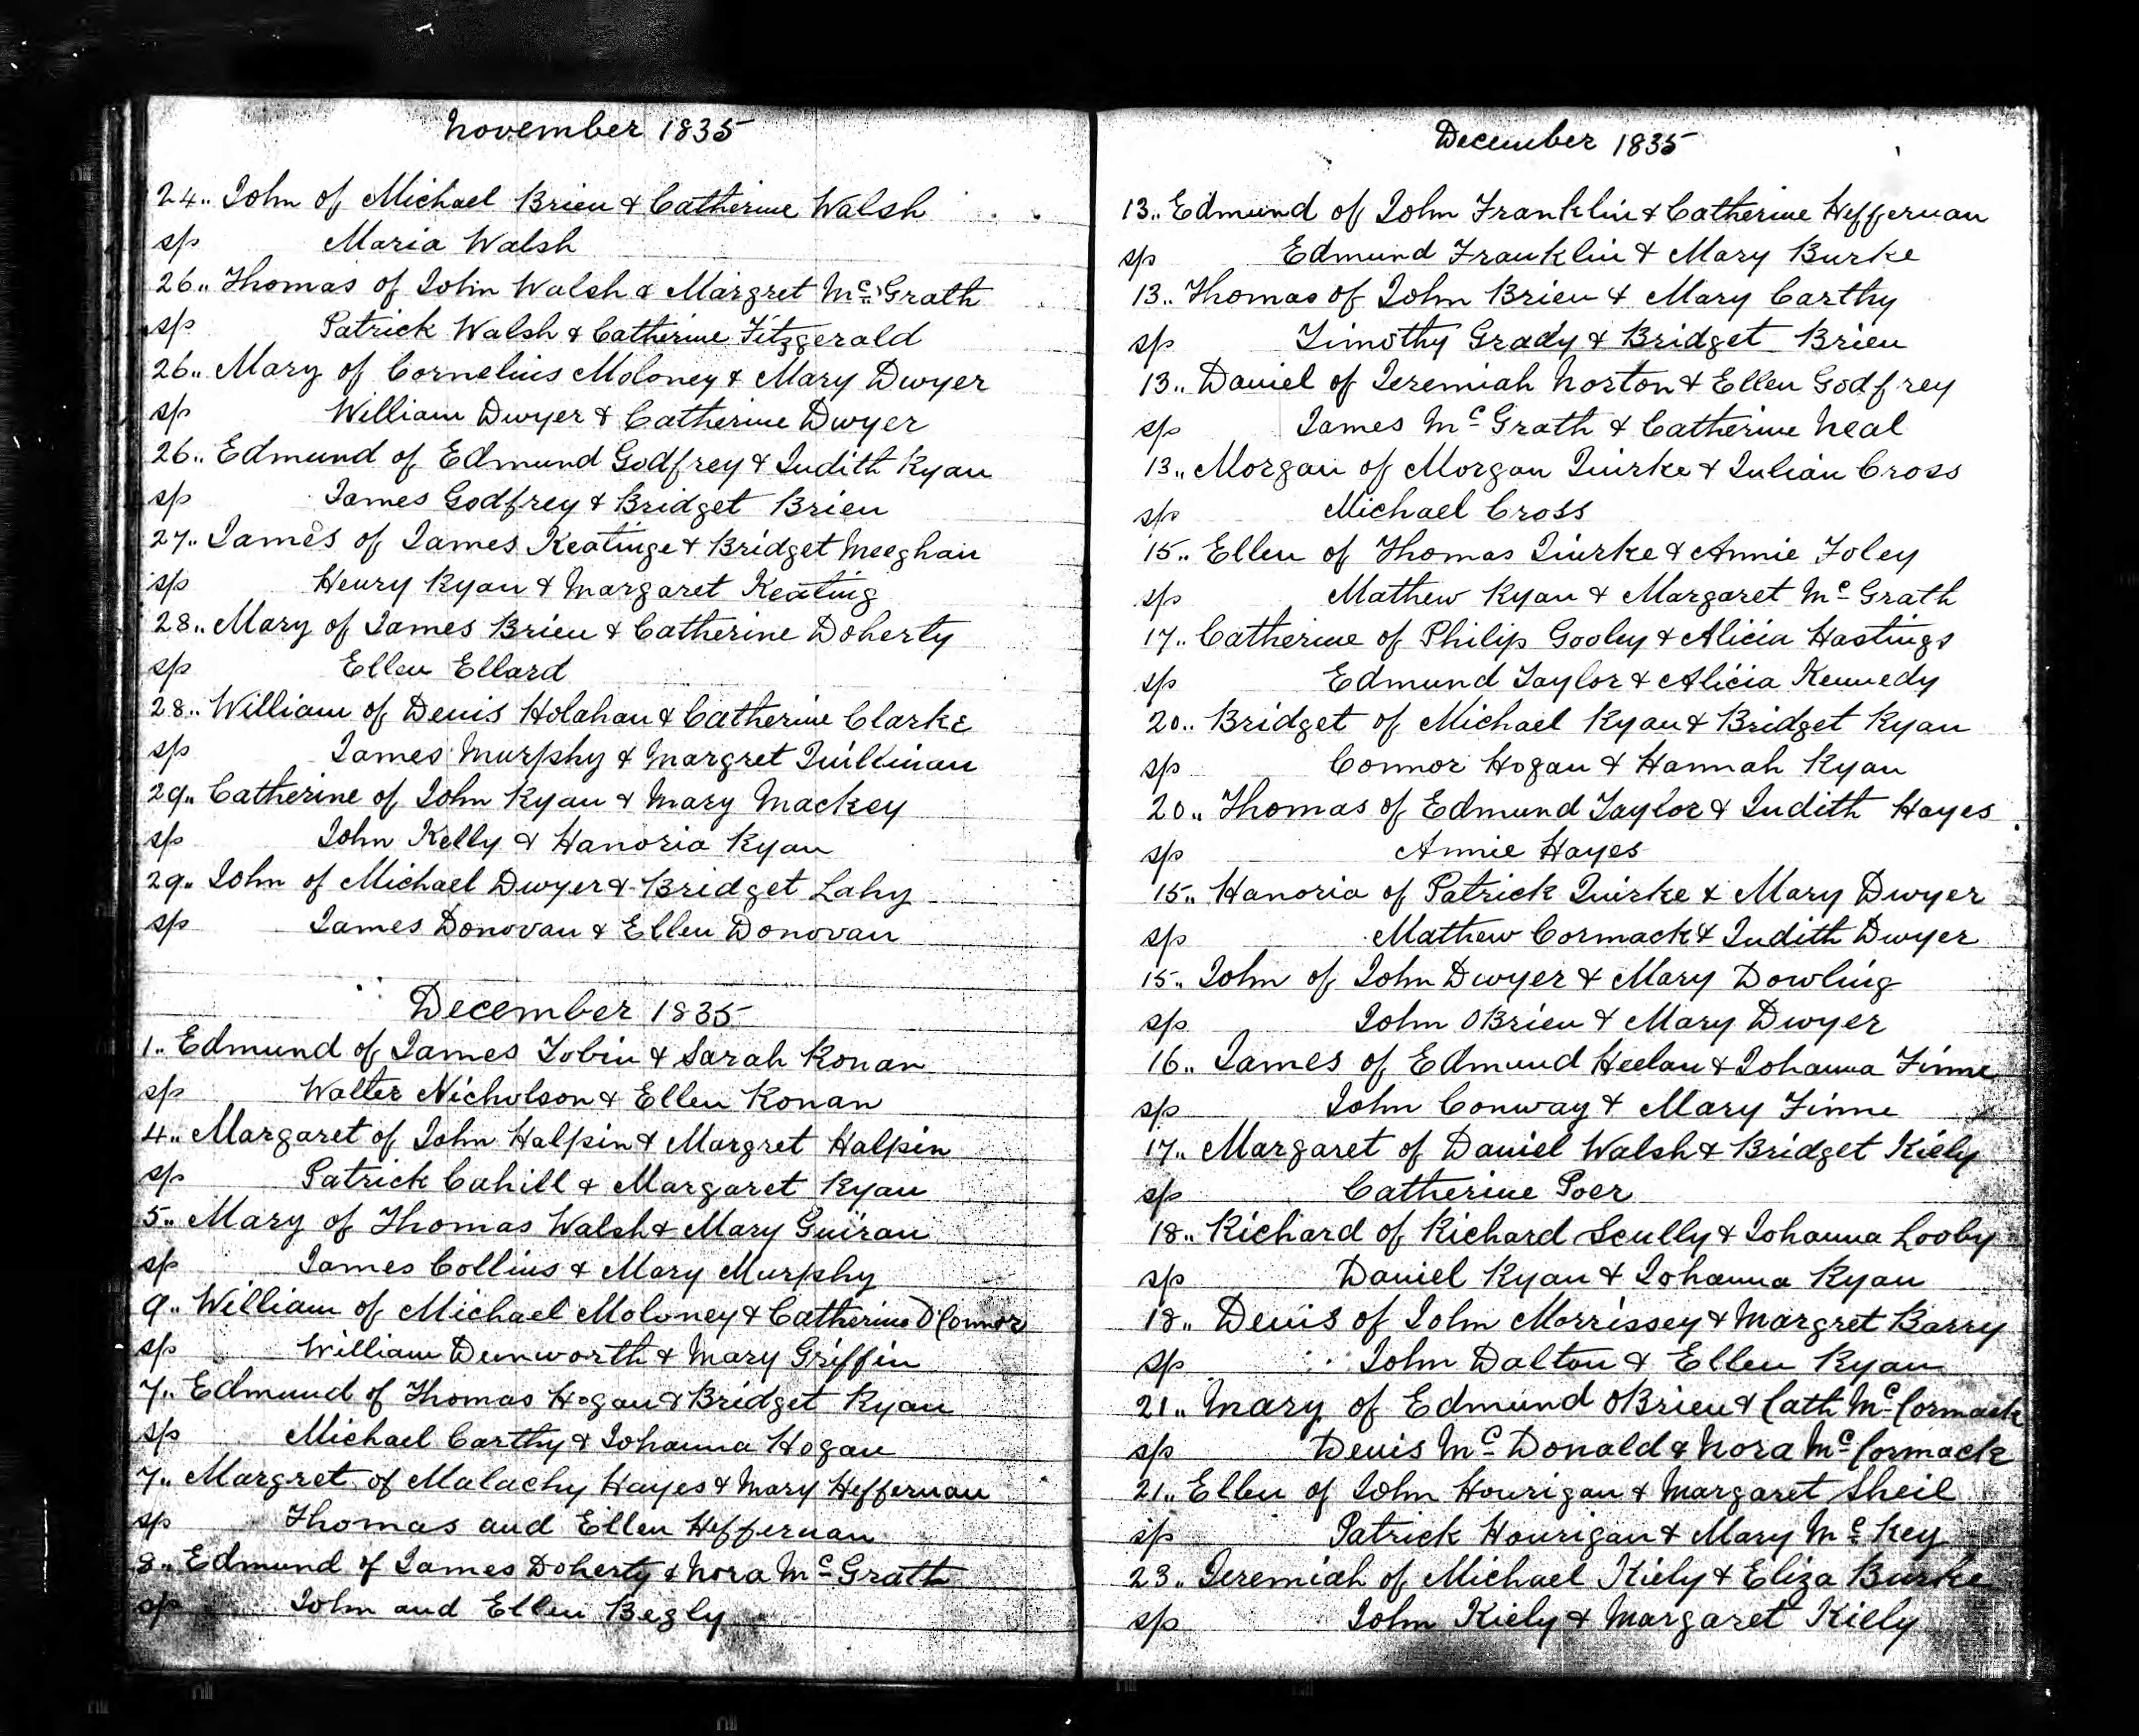 November 1835
24.. John of Michael Brien & Catherine Walsh
sp Maria Walsh
26.. Thomas of John Walsh & Margret Mc Grath
sp Patrick Walsh & Catherine Fitzgerald
26.. Mary of Cornelius Moloney & Mary Dwyer
sp William Dwyer & Catherine Dwyer
26.. Edmund of Edmund Godfrey & Judith Ryan
sp James Godfrey & Bridget Brien
27.. James of James Keatinge & Bridget Meeghan
sp Henry Ryan & Margaret Keating
28.. Mary of James Brien & Catherine Doherty
sp Ellen Ellard
28.. William of Denis Holahan & Catherine Clarke
sp James Murphy & Margret Quillinan
29.. Catherine of John Ryan & Mary Mackey
sp John Kelly & Hanoria Ryan
29.. John of Michael Dwyer & Bridget Lahy
sp James Donovan & Ellen Donovan
December 1835
1.. Edmund of James Tobin & Sarah Ronan
sp Walter Nicholson & Ellen Ronan
4.. Margaret of John Halpin & Margret Halpin
sp Patrick Cahill & Margaret Ryan
5.. Mary of Thomas Walsh & Mary Guiran
sp James Collins & Mary Murphy
9.. William of Michael Moloney & Catherine O'Connor
sp William Dunworth & Mary Griffin
7.. Edmund of Thomas Hogan & Bridget Ryan
sp Michael Carthy & Johanna Hogan
7.. Margret of Malachy Hayes & Mary Heffernan
sp Thomas and Ellen Heffernan
8.. Edmund of James Doherty & Nora Mc Grath
sp John and Ellen Begly
December 1835
13.. Edmund of John Franklin & Catherine Heffernan
sp Edmund Franklin & Mary Burke
13.. Thomas of John Brien & Mary Carthy
sp Timothy Grady & Bridget Brien
13.. Daniel of Jeremiah Norton & Ellen Godfrey
sp James Mc Grath & Catherine Neal
13.. Morgan of Morgan Quirke & Julian Cross
sp Michael Cross
15.. Ellen of Thomas Quirke & Annie Foley
sp Mathew Ryan & Margaret Mc Grath
17.. Catherine of Philip Gooley & Alicia Hastings
sp Edmund Taylor & Alicia Kennedy
20.. Bridget of Michael Ryan & Bridget Ryan
sp Connor Hogan & Hannah Ryan
20.. Thomas of Edmund Taylor & Judith Hayes
sp Annie Hayes
15.. Hanoria of Patrick Quirke & Mary Dwyer
sp Mathew Cormack & Judith Dwyer
15.. John of John Dwyer & Mary Dowling
sp John OBrien & Mary Dwyer
16.. James of Edmund Heelan & Johanna Finne
sp John Conway & Mary Finne
17.. Margaret of Daniel Walsh & Bridget Kiely
sp Catherine Poer
18.. Richard of Richard Scully & Johanna Looby
sp Daniel Ryan & Johanna Ryan
18.. Denis of John Morrissey & Margret Barry
sp John Dalton & Ellen Ryan
21.. Mary of Edmund OBrien & Cath Mc Cormack
sp Denis Mc Donald & Nora Mc Cormack
21.. Ellen of John Hourigan & Margaret Sheil
sp Patrick Hourigan & Mary Mc Key
23.. Jeremiah of Michael Kiely & Eliza Burke
sp John Kiely & Margaret Kiely